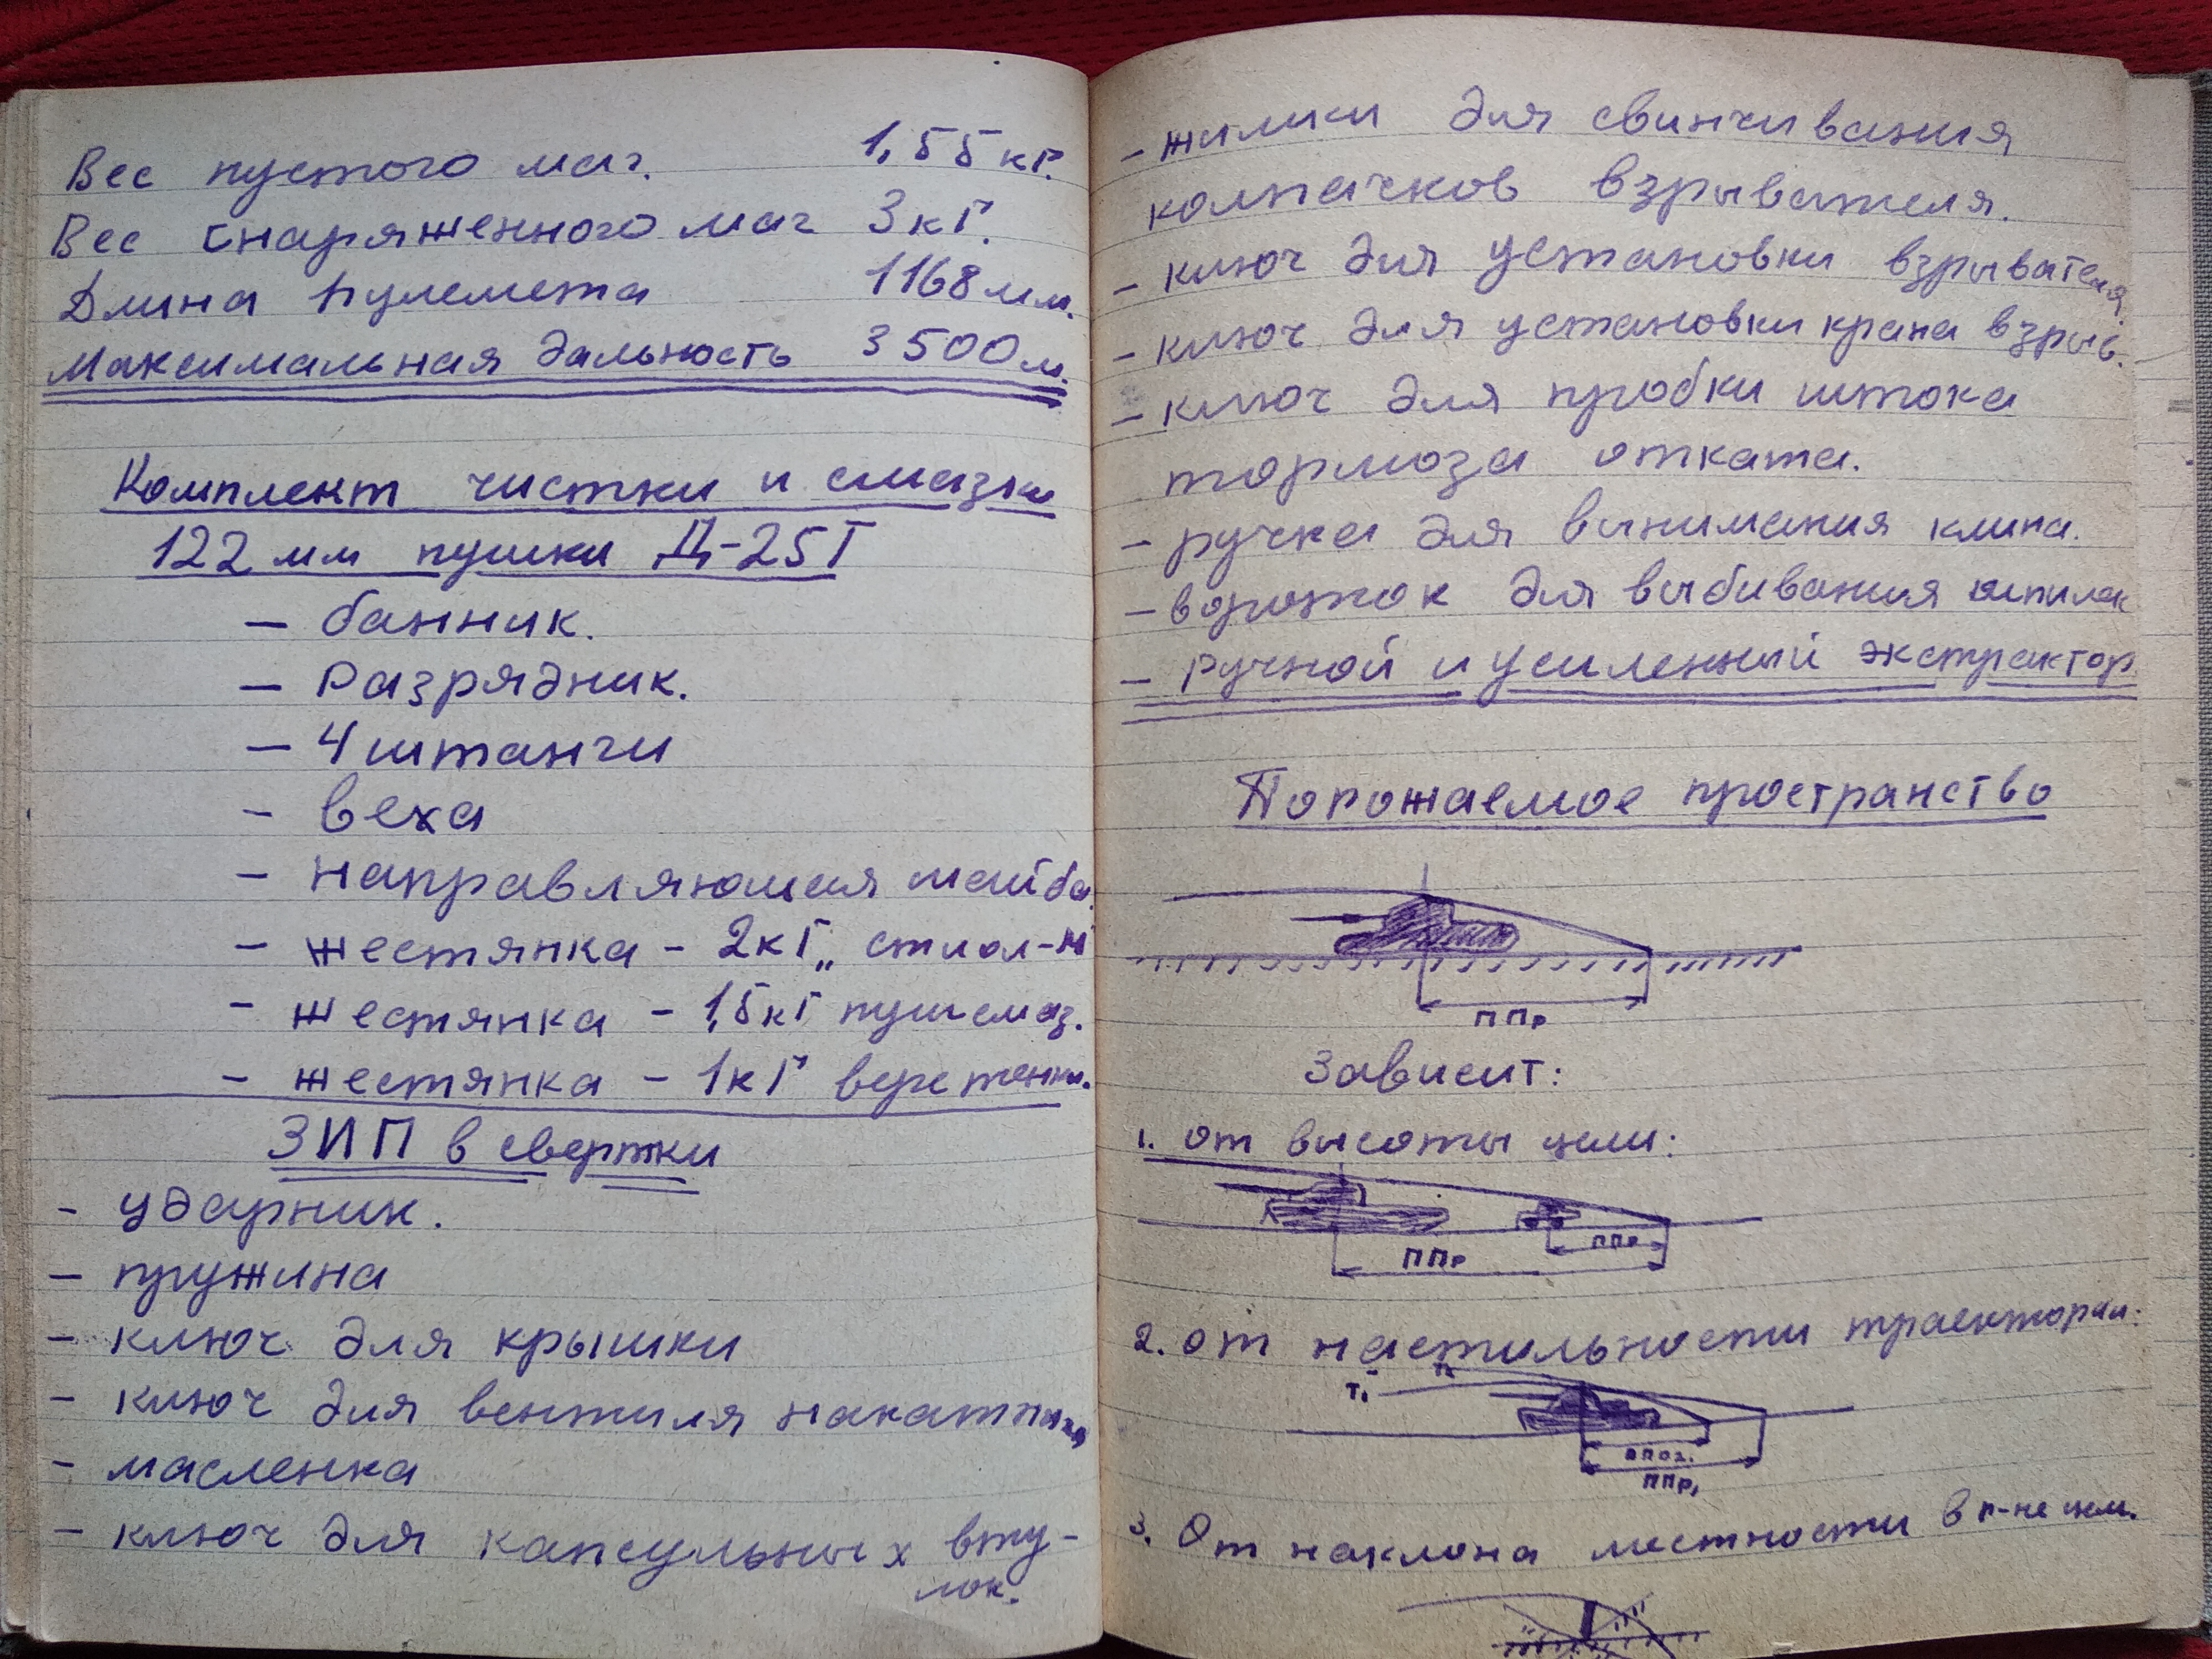 Вес пустого маг. 1,55 кГ.
Вес снаряженного маг 3 кГ.
Длина пулемета 1168 мм.
Максимальная дальность 3500 м.
Комплект чистки и смазки
122 мм пушки Д-25Т
– банник.
– Разрядник.
– 4 штанги
– веха
– направляющая шайба.
– жестянка – 2 кГ
– жестянка – 1,5 кГ пуш смаз.
– жестянка – 1 кГ веретенн.
ЗИП в свертки
– ударник.
– пружина
– ключ для крышки
– ключ для вентиля накатника
– масленка
– ключ для капсульных вту-
лок.
– для свинчивания
колпачков взрывателя.
– ключ для установки взрывателя
– ключ для установки крана взрыв.
– ключ для пробки штока
тормоза отката.
– ручка для вынимания клина.
– вороток для выбивания шпилек
– Ручной и усиленный экстрактор
Порожаемое пространство
ППр
Зависит:
1. от высоты цели:
ППр
ППр
2. от настильности траектории:
Т₁
ППр₁
3. От наклона местности в р-не цели.